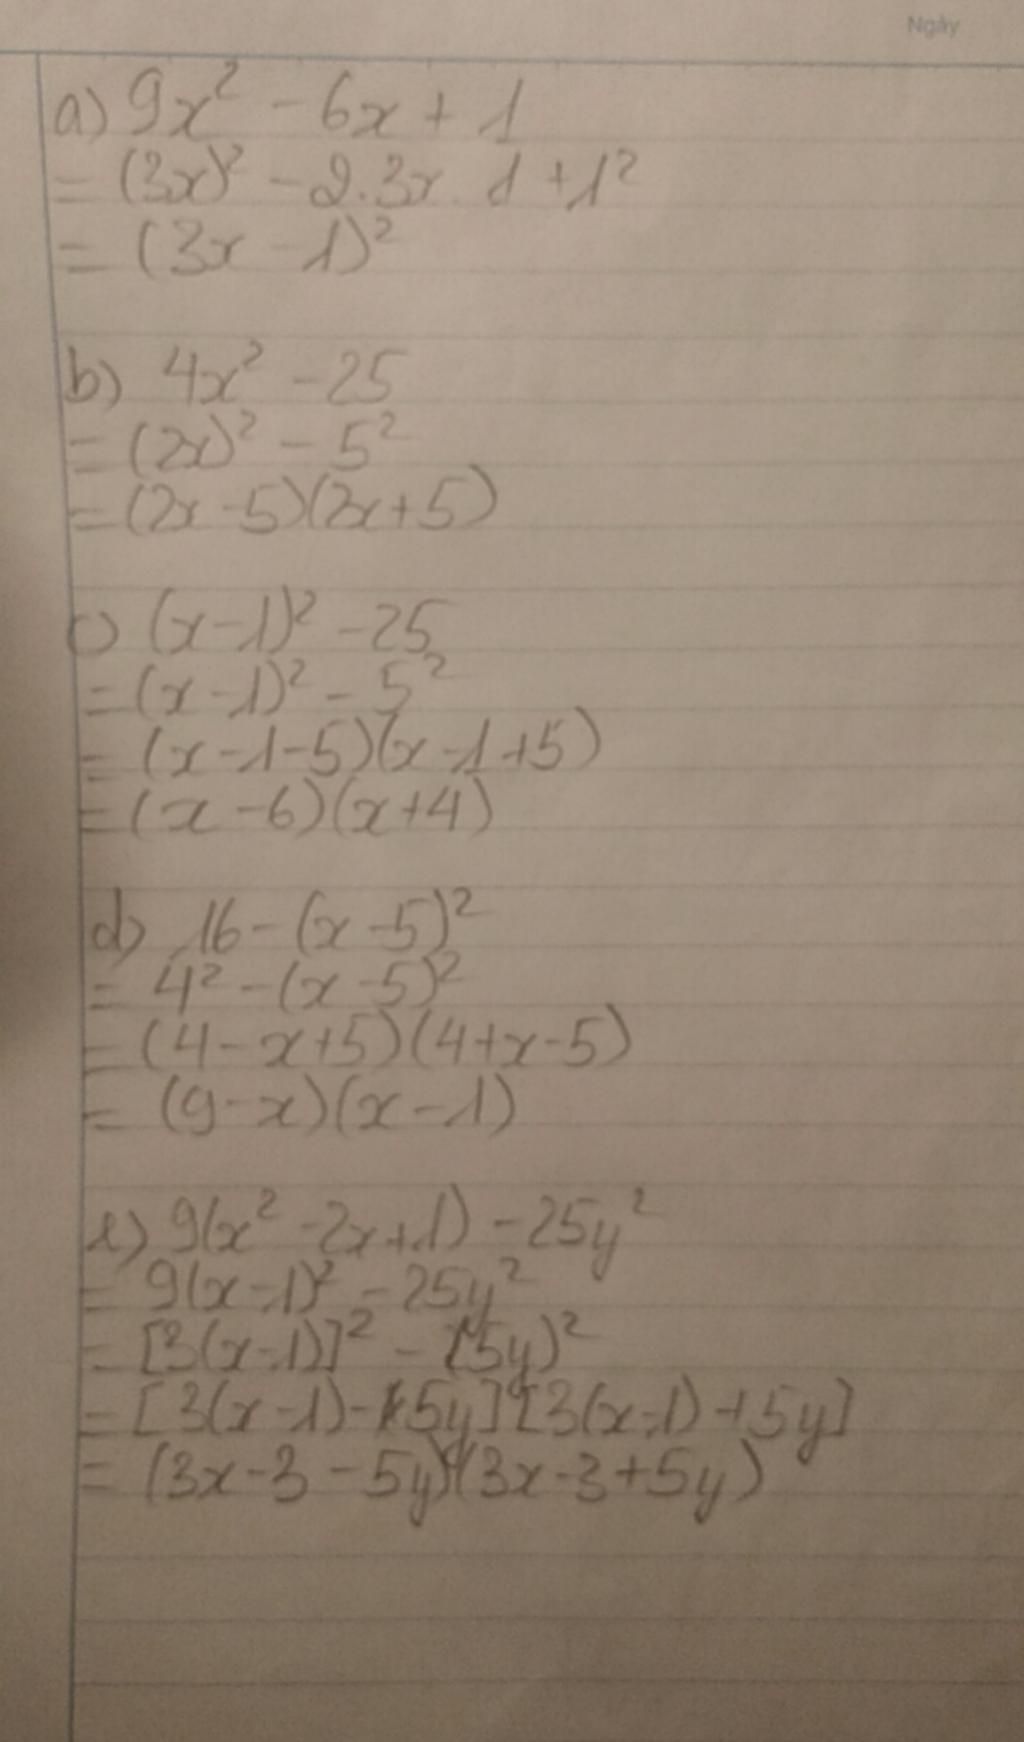 Ngày
a) 9x² - 6x + 1
= (3x)² - 2.3x.1 + 1²
= (3x - 1)²
b) 4x² - 25
= (2x)² - 5²
= (2x - 5)(2x + 5)
c) (x - 1)² - 25
= (x - 1)² - 5²
= (x - 1 - 5)(x - 1 + 5)
= (x - 6)(x + 4)
d) 16 - (x - 5)²
= 4² - (x - 5)²
= (4 - x + 5)(4 + x - 5)
= (9 - x)(x - 1)
e) 9(x² - 2x + 1) - 25y²
= 9(x - 1)² - 25y²
= [3(x - 1)]² - (5y)²
= [3(x - 1) - 5y][3(x - 1) + 5y]
= (3x - 3 - 5y)(3x - 3 + 5y)